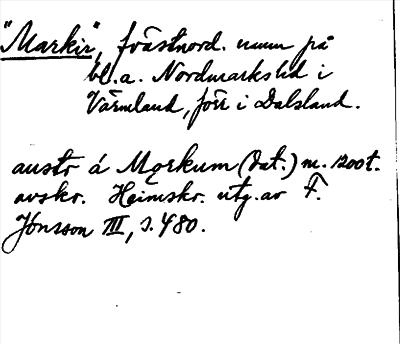 "Markir", fvästnord. namn på
bl.a. Nordmarks hd i
Värmland, förr i Dalsland.
austr á Mǫrkum (dat.) m. 1200t.
avskr. Heimskr. utg. av F.
Jónsson III, s. 480.